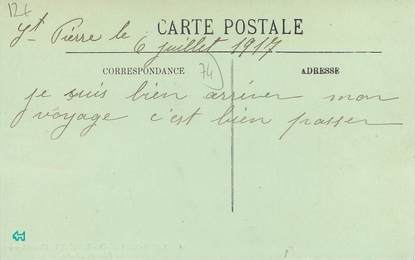 12f
CARTE POSTALE
St Pierre le 6 juillet 1917
CORRESPONDANCE
74
ADRESSE
je suis bien arriver mon
voyage c'est bien passer